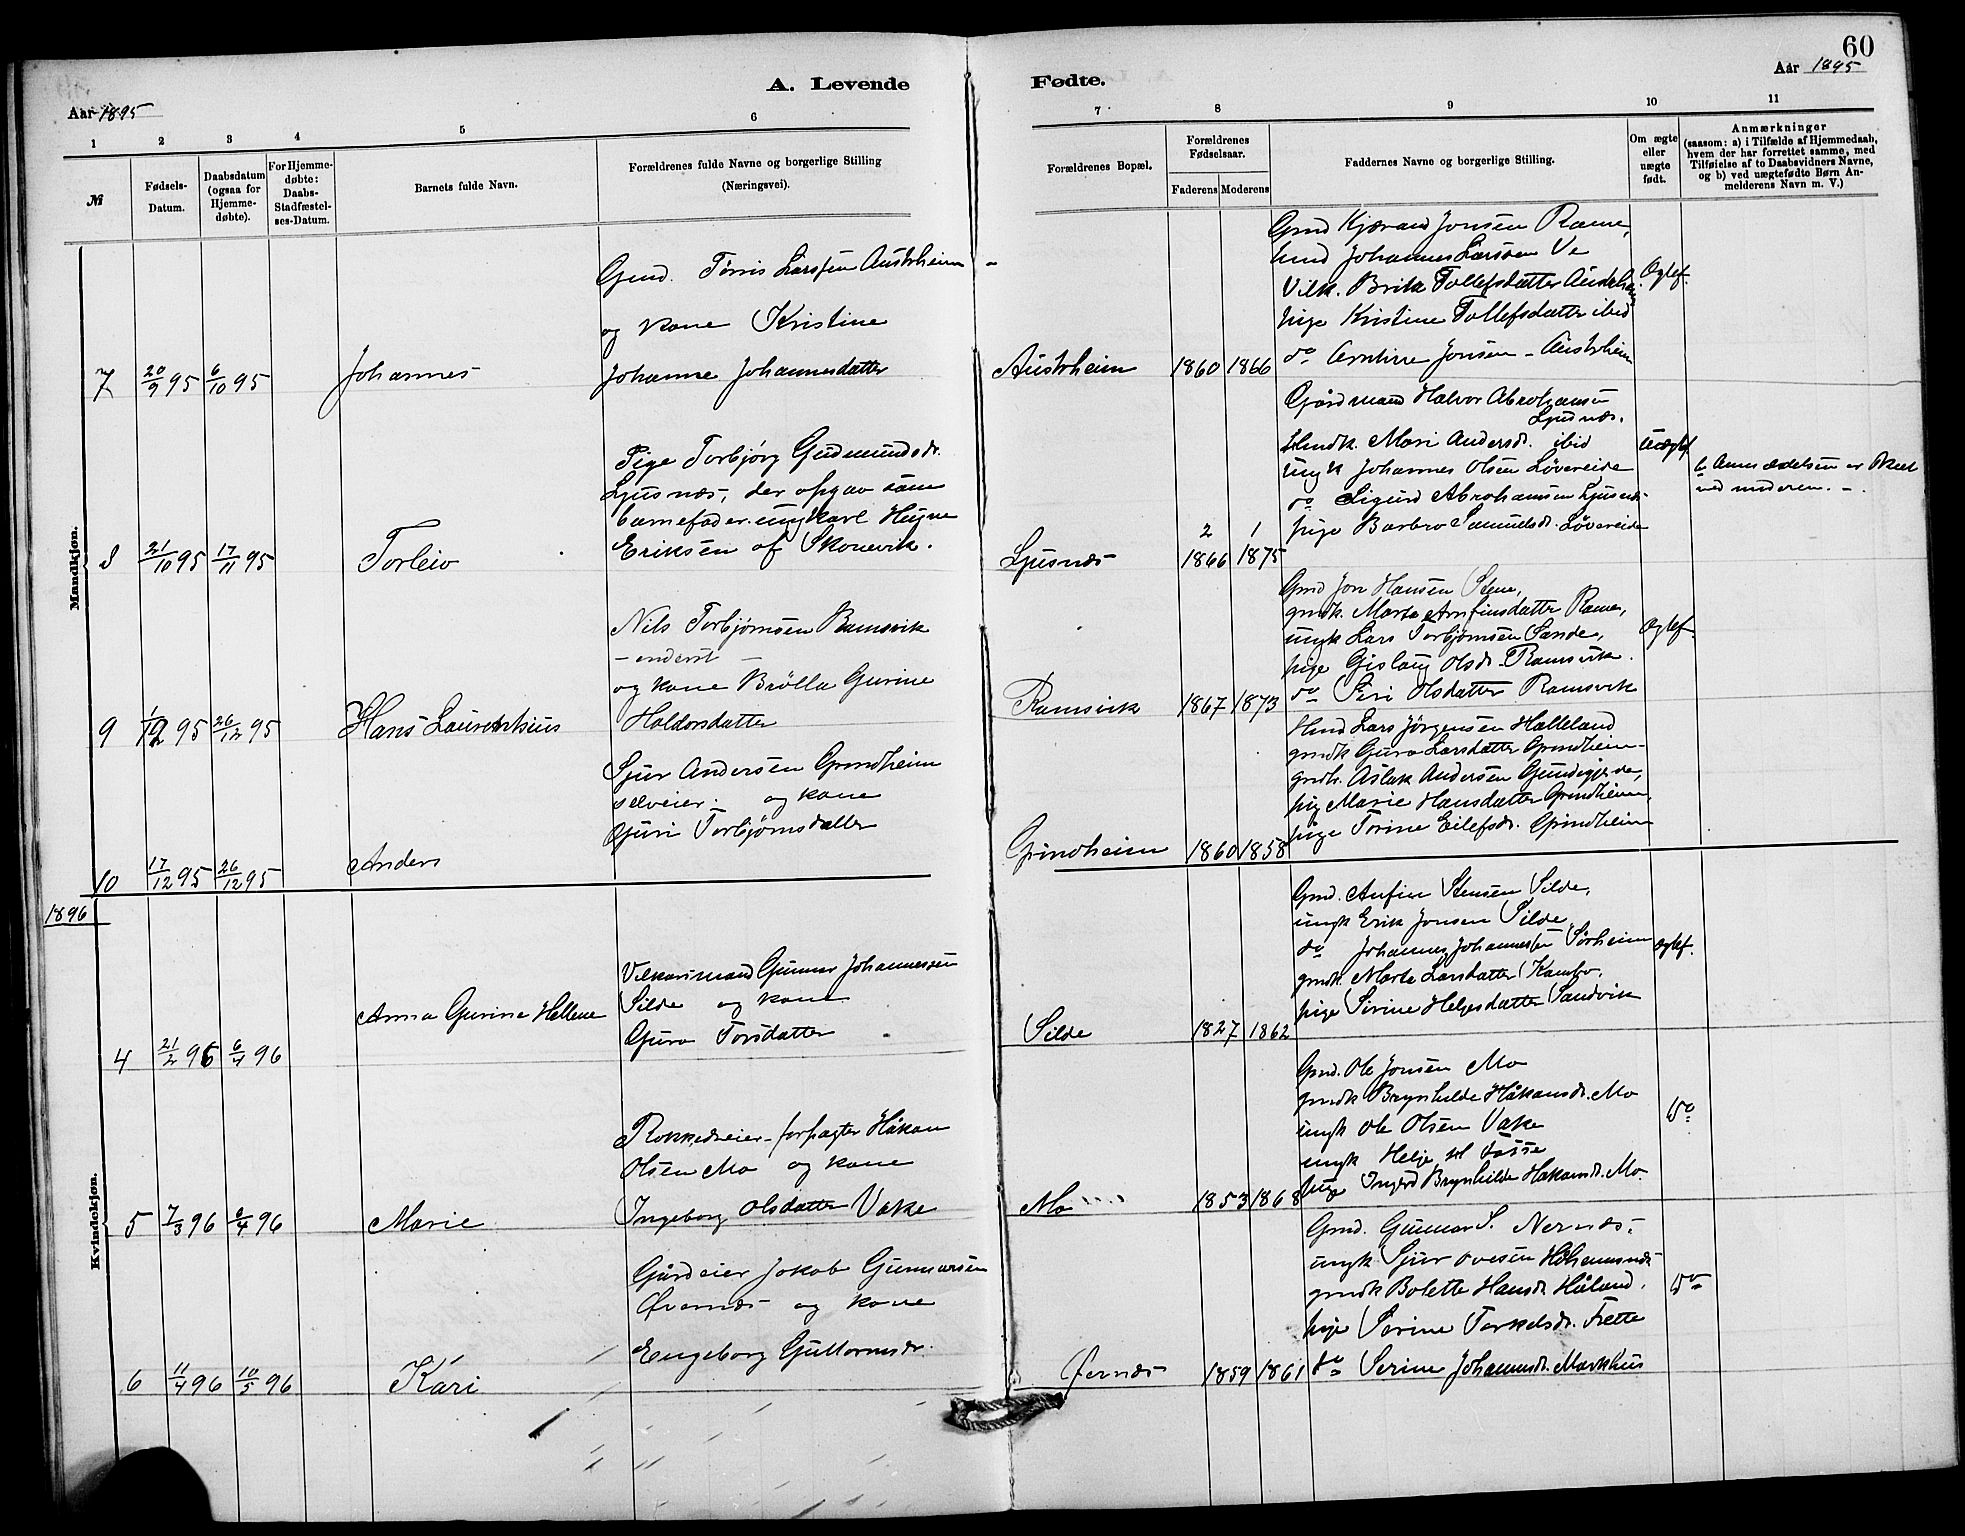 60
A. Levende
Fødte.
Aar 1895
Aar 1895
1 2 3 4 5 6 7 8 9 10 11
№
Fødsels-
Datum.
Daabsdatum
(ogsaa for
Hjemme-
døbte).
For Hjemme-
døbte:
Daabs-
Stadfæstel-
ses-Datum.
Barnets fulde Navn.
Forældrenes fulde Navne og borgerlige Stilling
(Næringsvei).
Forældrenes Bopæl.
Forældrenes
Fødselsaar.
Faderens Moderens
Faddernes Navne og Stilling.
Om ægte
eller
uægte
født.
Anmærkninger
(saasom: a) i Tilfælde af Hjemmedaab,
hvem der har forrettet samme, med
Tilføielse af to Daabsvidners Navne,
og b) ved uægtefødte Børn An-
melderens Navn m. V.)
Mandkjøn.
7 20/9 95 6/10 95 Johannes
Gmd. Tørris Larssen Austrheim
og kone Kristine
Johanne Johannesdatter
Austrheim 1860 1866
Gmd Kjærand Jonsen Rame,
hmd Johannes Larssen Ve
Vilk. Brita Tollefsdatter Austrheim
pige Kristine Tollefsdatter ibid
do Arntine Jonsen - Austrheim
Ægtef.
8 21/10 95 17/11 95 Torleiv
Pige Torbjørg Gudmundsdr.
Ljusnæs, der opgav som
barnefader ungkarl
Eriksen af Skonevik.
Ljusnæs 2 1
1866 1875
Gårdmand Halvor Abrahamsen
Ljusnæs.
Hmdk. Mari Andersdr. ibid
ungk Johannes Olsen Løvereide
do Sigurd Abrahamsen Ljusnæs
pige Barbro Samuelsdr. Løvereide
Uægtef
b Anmeldelsen er skeet
ved moderen. -
9 1/12 95 26/12 95 Hans Laurentsius
Nils Torbjørnsen Ramsvik
- inderst -
og kone Brølla Gurine
Haldorsdatter
Ramsvik 1867 1873
Gmd Jon Hansen Stene,
gmdk. Marta Arnfinsdatter Rame,
ungk Lars Torbjørnsen Sande,
pige Gislaug Olsdr. Ramsvik.
do Siri Olsdatter Ramsvik
Ægtef.
10 17/12 95 26/12 95 Anders
Sjur Andersen Grindheim
selveier. og kone
Guri Torbjørnsdatter
Grindheim 1860 1858
Hmd Lars Jørgensen Halleland
gmdk Guro Larsdatter Grindheim-
gmd. Aslak Andersen
pig Marie Hansdatter Grindheim,
pige Torine Eilefsdr. Grindheim
1896
Kvindekjøn.
4 21/2 96 6/4 96 Anna Gurina Hellene
Vilkaarsmand Gunnar Johannessen
Silde og kone
Guro Torsdatter
Silde 1827 1862
Gmd. Anfin Stensen Silde,
ungk Erik Jonsen Silde
do Johannes Johannessen Sørheim
gmdk. Marta Larsdatter Kambo.
pige Sirine Helgesdatter Sandvik
Ægtef.
5 7/3 96 6/4 96 Marie
Rokkedreier - forpagter Håkon
Olsen Mo og kone
Ingeborg Olsdatter Vake
Mo 1853 1868
Gmd. Ole Jonsen Mo
gmdk Brynhilde Håkonsdr. Mo
ungk Ole Olsen Vake
ungk Helje Fosse
pige Ingerd Brynhilde Hakonsdr. Mo.
Do
6 11/4 96 10/5 96 Kari
Gårdeier Jakob Gunnarsen
Øvernæs og kone
Engeborg Guttormsdr.
Øernæs 1859 1861
Gmd. Gunnar S. Nernæs-
ungk Sjur Ovesen
gmdk Bolette Hansdr. Håland.
pige Serine Torkelsdr. Frette
do Serine Johannesdr. Markhus
Do